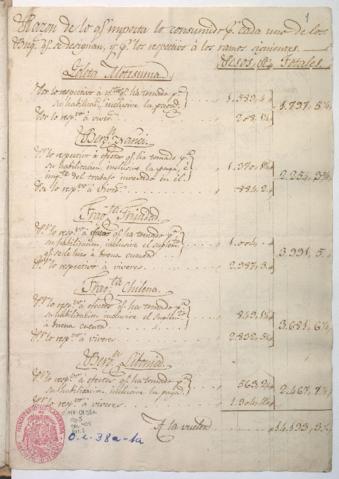 Razon de lo q.e importa lo consumido p.r cada uno de los
Buq.s q.e se designan, y q.e los respectivo à los ramos
Pesos, r.s Totales
Goleta Motesuma
Por lo respectivo à efectos q.e ha tomado p.a
su habilitac.n inclusive la paga
1.797, 5
P.r lo resp.vo à viveres
208, 1
Berg.n Nanci
P.r lo respectivo à efectos q.e ha tomado p.a
su habilitacion inclusive la paga, è
imp.te del trabajo invertido en el
1.370, 1
2.254, 3
P.r lo resp.vo à viveres
884, 2
Frag.ta Trinidad
P.r lo respectivo à efectos q.e ha tomado p.a
su habilitacion, inclusive el suplem.to
q.e se le hizo à buena cuenta
3.991, 5
P.r lo respectivo à viveres
2.987, 3
Frag.ta Chilena
P.r lo respectivo à efectos q.e ha tomado p.a
su habilitacion inclusive el suplem.to
à buena cuenta
849, 1
3.681, 6
P.r lo resp.vo à viveres
2.832, 5
Berg.n Libonia
P.r lo respectivo à efectos q.e ha tomado p.a
su habilitacion, inclusive la paga
563, 2
2.467, 7
P.r lo resp.vo à viveres
A la vuelta
14.193, 3
O.L. 38a-1a